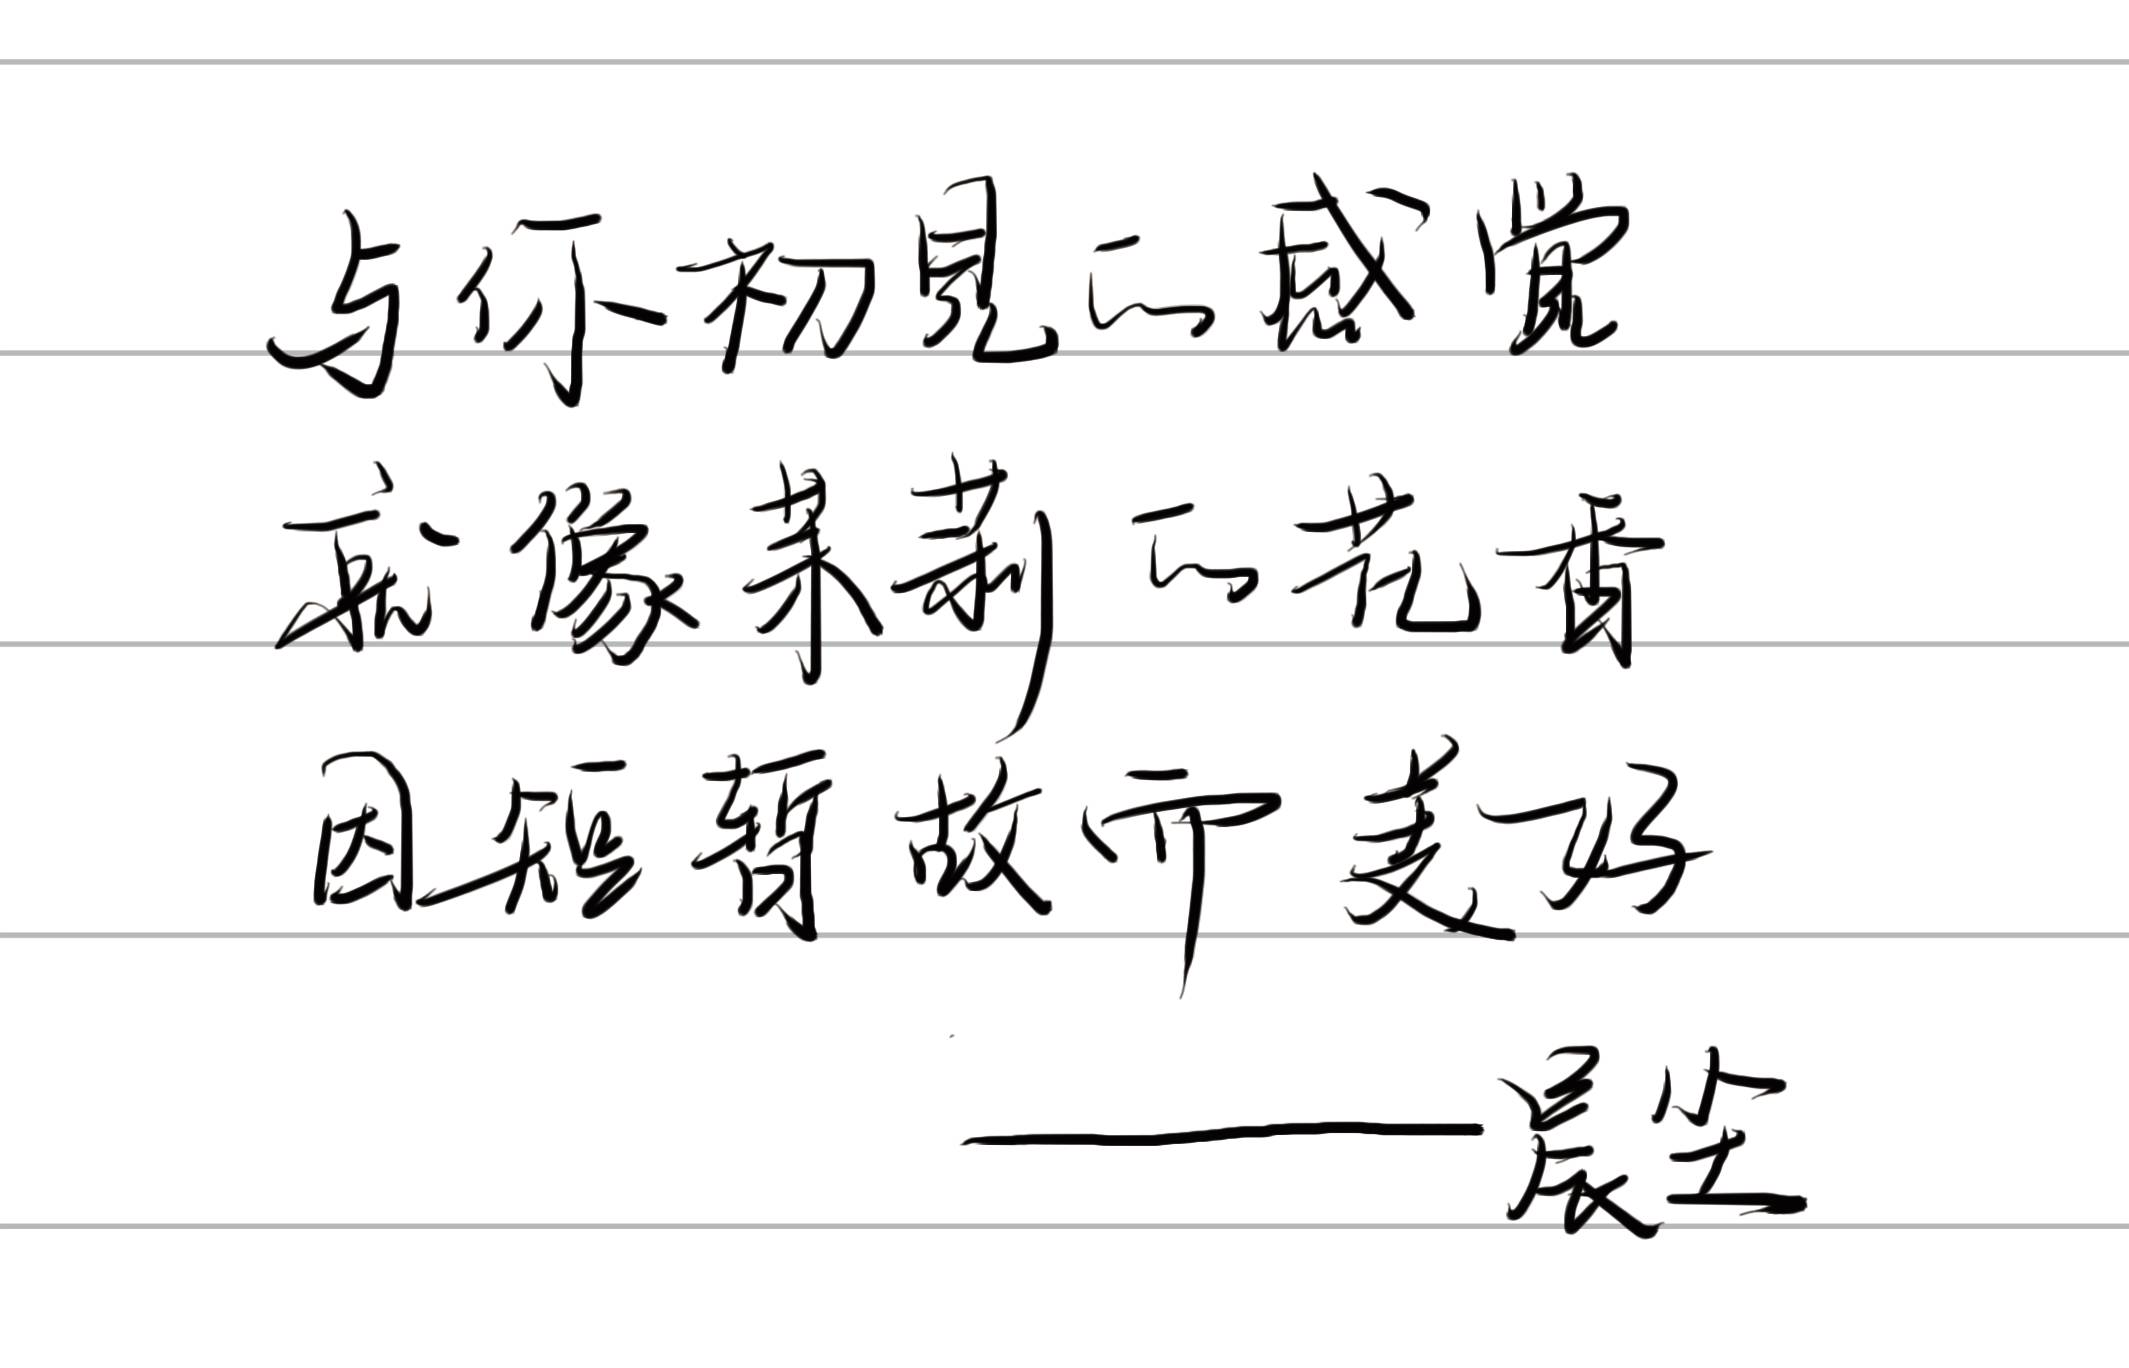 与你初見的感覚
就像茉莉的花香
因短暂故而美好
——晨尘